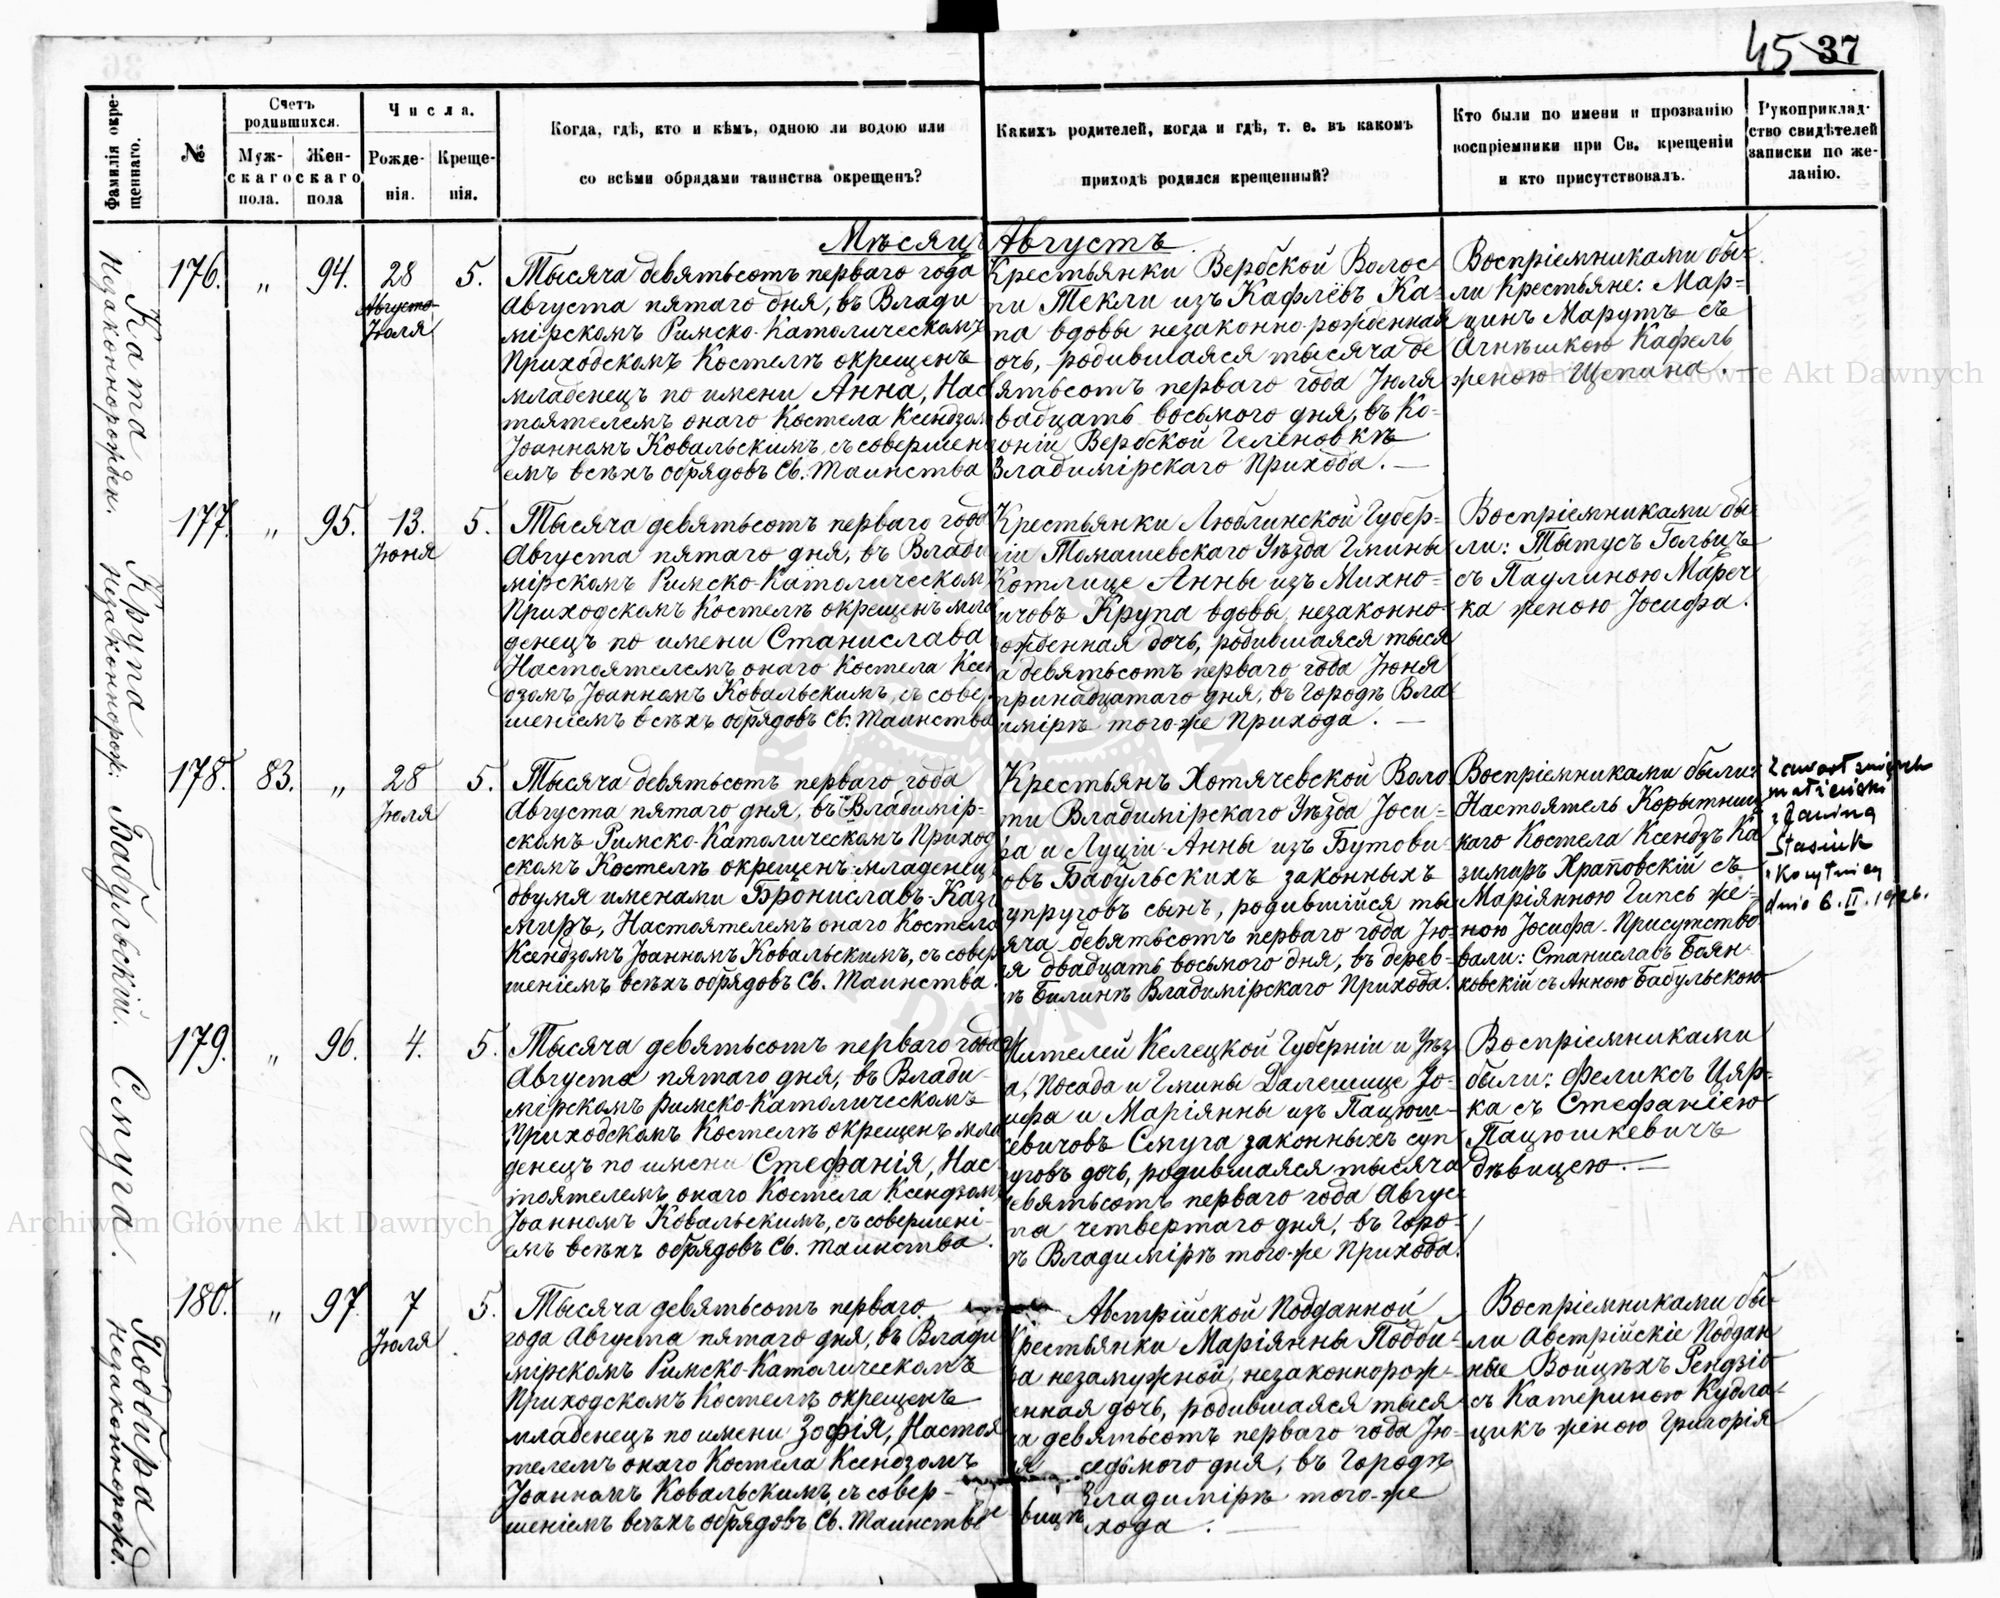 45 37
Фамилія окре-
щеннаго.
№
Счетъ
родившихся.
Муж-
скаго
пола.
Жен-
скаго
пола
Числа.
Рожде-
нія.
Креще-
нія.
Когда, гдѣ, кто и кѣмъ, одною ли водою или
со всѣми обрядами таинства окрещенъ?
Какихъ родителей, когда и гдѣ, т. е. въ какомъ
приходѣ родился крещенный?
Кто были по имени и прозванію
воспріемники при Св. крещеніи
и кто присутствовалъ.
Рукоприклад-
ство свидѣтелей
записки по же-
ланію.
Мѣсяцъ Августъ
Ката
незаконнорожден.
176. „ 94. 28 5.
Августа
Іюля
Тысяча девятьсотъ перваго года
Августа пятаго дня, въ Влади
мірскомъ Римско-Католическомъ
Приходскомъ Костелѣ окрещенъ
младенецъ по имени Анна, Нас
тоятелемъ онаго Костела Ксендзом
Іоанномъ Ковальскимъ, съ совершен
емъ всѣхъ обрядовъ Св. Таинства
Крестьянки Вербской Волос
ти Текли изъ Кафлёвъ Ка-
та вдовы незаконно-рожденная
очь, родившаяся тысяча де
вятьсотъ перваго года Іюля
вадцать восьмого дня, въ Ко-
оніи Вербской Геленовкѣ
Владимірскаго Прихода.
Воспріемниками бы-
ли Крестьяне: Мар-
цинъ Марутъ съ
Агнѣшкою Кафель
женою Щепана.
Крупа
незаконнорож.
177. „ 95. 13. 5.
Іюня
Тысяча девятьсотъ перваго года
Августа пятаго дня, въ Влади
мірскомъ Римско-Католическом
Приходскомъ Костелѣ окрещенъ мла
денецъ по имени Станислава
Настоятелемъ онаго Костела Ксен
дзомъ Іоанномъ Ковальскимъ, съ совер
шеніемъ всѣхъ обрядовъ Св. Таинства
Крестьянки Люблинской Губер-
ніи Томашевскаго Уѣзда Гмины
Котлице Анны изъ Михно-
ичовъ Крупа вдовы незаконно-
ожденная дочь, родившаяся тыся
а девятьсотъ перваго года Іюня
тринадцатаго дня, въ Городѣ Вла
имірѣ того-же Прихода.
Воспріемниками бы-
ли: Тытусъ Гольцъ
съ Паулиною Мареч
ка женою Іосифа.
Бабульскій.
178. 83. „ 28 5.
Іюля
Тысяча девятьсотъ перваго года
Августа пятаго дня, въ Владимір-
скомъ Римско-Католическомъ Приход
скомъ Костелѣ окрещенъ младенец
двумя именами Брониславъ-Кази
миръ, Настоятелемъ онаго Костела
Ксендзомъ Іоанномъ Ковальскимъ, съ совер
шеніемъ всѣхъ обрядовъ Св. Таинства.
Крестьянъ Хотячевской Воло
ти Владимірскаго Уѣзда Іоси-
фа и Луціи-Анны изъ Бутови-
овъ Бабульскихъ законныхъ
упруговъ сынъ, родившійся ты
яча девятьсотъ перваго года Ію-
ля двадцать восьмого дня, въ дерев-
нѣ Билинѣ Владимірскаго Прихода.
Воспріемниками были:
Настоятель Корытниц
каго Костела Ксендзъ Ка
зимиръ Храповскій съ
Маріянною Гипсъ же-
ною Іосифа. Присутство
вали: Станиславъ Боян-
ковскій съ Анною Бабульскою
Zawarł związek
małżeński
z Janiną
Stasiuk
w Korytnicy
dnia 6. II. 1926.
Смуга.
179. „ 96. 4. 5.
Тысяча девятьсотъ перваго года
Августа пятаго дня, въ Влади-
мірскомъ римско-Католическомъ
Приходскомъ Костелѣ окрещенъ мла
денецъ по имени Стефанія, Нас
тоятелемъ онаго Костела Ксендзомъ
Іоанномъ Ковальскимъ, съ совершені-
емъ всѣхъ обрядовъ Св. Таинства.
Жителей Келецкой Губерніи и Уѣз
а, Посада и Гмины Далешице Іо-
ифа и Маріянны изъ Пацюш-
евичовъ Смуга законныхъ суп
уговъ дочь, родившаяся тысяча
девятьсотъ перваго года Авгус
та четвертаго дня, въ Горо-
ѣ Владимірѣ того-же Прихода.
Воспріемниками
были: Феликсъ Цяр-
ка съ Стефаніею
Пацюшкевичъ
дѣвицею.
Поддубра
незаконнорожд.
180. „ 97. 7 5.
Іюля
Тысяча девятьсотъ перваго
года Августа пятаго дня, въ Влади
мірскомъ Римско-Католическомъ
Приходскомъ Костелѣ окрещенъ
младенецъ по имени Зофія, Настоя
телемъ онаго Костела Ксендзомъ
Іоанномъ Ковальскимъ, съ совер-
шеніемъ всѣхъ обрядовъ Св. Таинства
Австрійской Подданной
Крестьянки Маріянны
а незамужной, незаконнорож-
енная дочь, родившаяся тыся
а девятьсотъ перваго года Ію-
ля седьмого дня, въ Городѣ
Владимірѣ того-же
хода.
Воспріемниками бы-
ли Австрійскіе Поддан
ные Войцѣхъ Рендзіо
съ Катериною Кудла-
цикъ женою Григорія
Archiwum Główne Akt Dawnych
Archiwum Główne Akt Dawnych